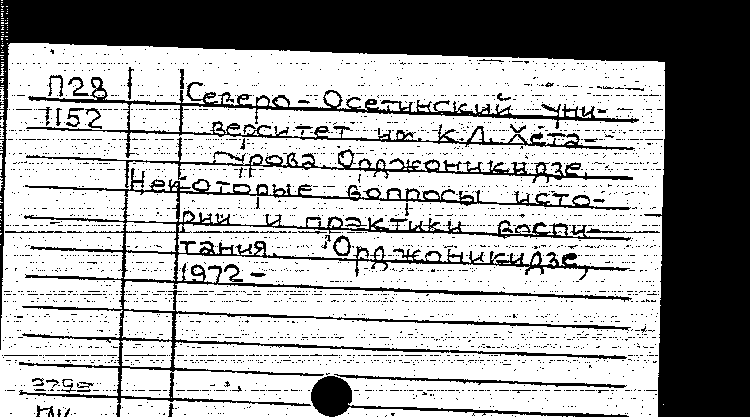 П28 Северо-Осетинский уни-
1152 верситет им. К.Л. Хета-
гурова. Орджоникидзе.
Некоторые вопросы исто-
рии и практики воспи-
тания. Орджоникидзе,
1972-